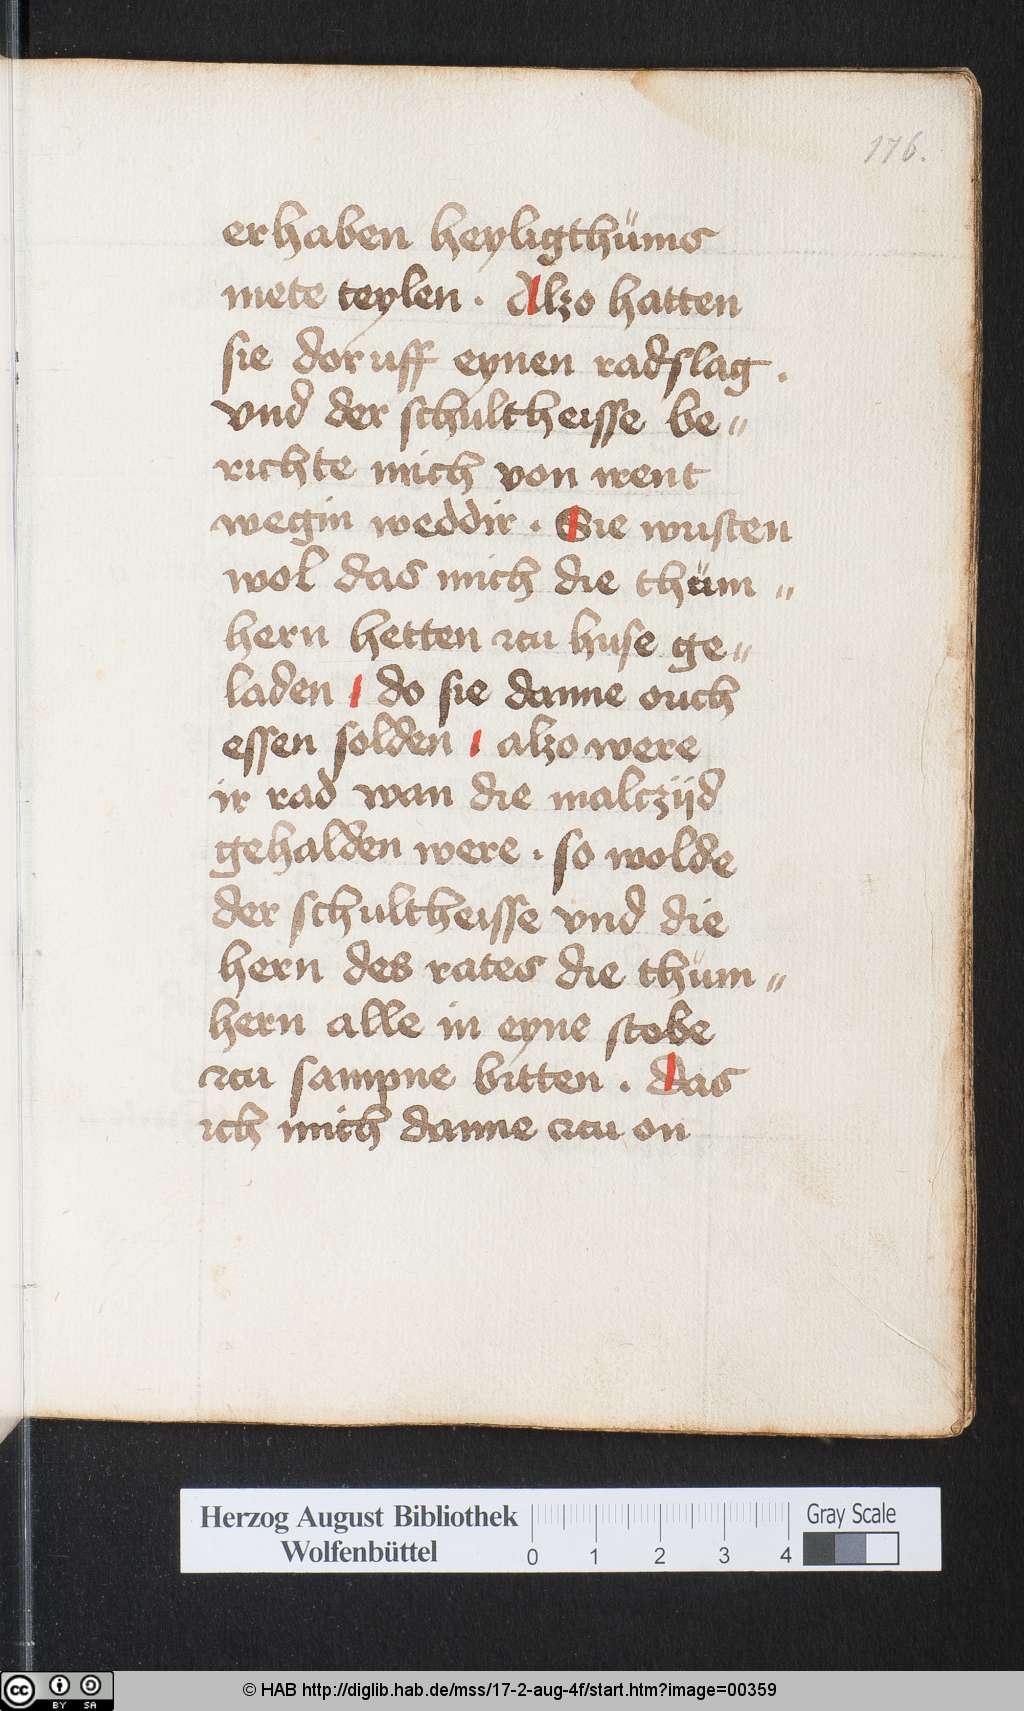 176.
erhaben heyligthüms
mete teylen . Alzo hatten
sie dor uff eynen radslag .
vnd der schultheisse be〃
richte mich von irent
wegin weddir . Sie wusten
wol das mich die thüm〃
hern hetten zcu huse ge〃
laden / do sie danne ouch
essen solden / alzo were
ir rad wan die malczijd
gehalden were . so wolde
der schultheisse vnd die
hern des rates die thüm〃
hern alle in eyne stobe
zcu sampne bitten . das
ich mich danne zcu on
Herzog August Bibliothek
Wolfenbüttel
0 1 2 3 4
Gray Scale
cc BY SA
© HAB http://diglib.hab.de/mss/17-2-aug-4f/start.htm?image=00359